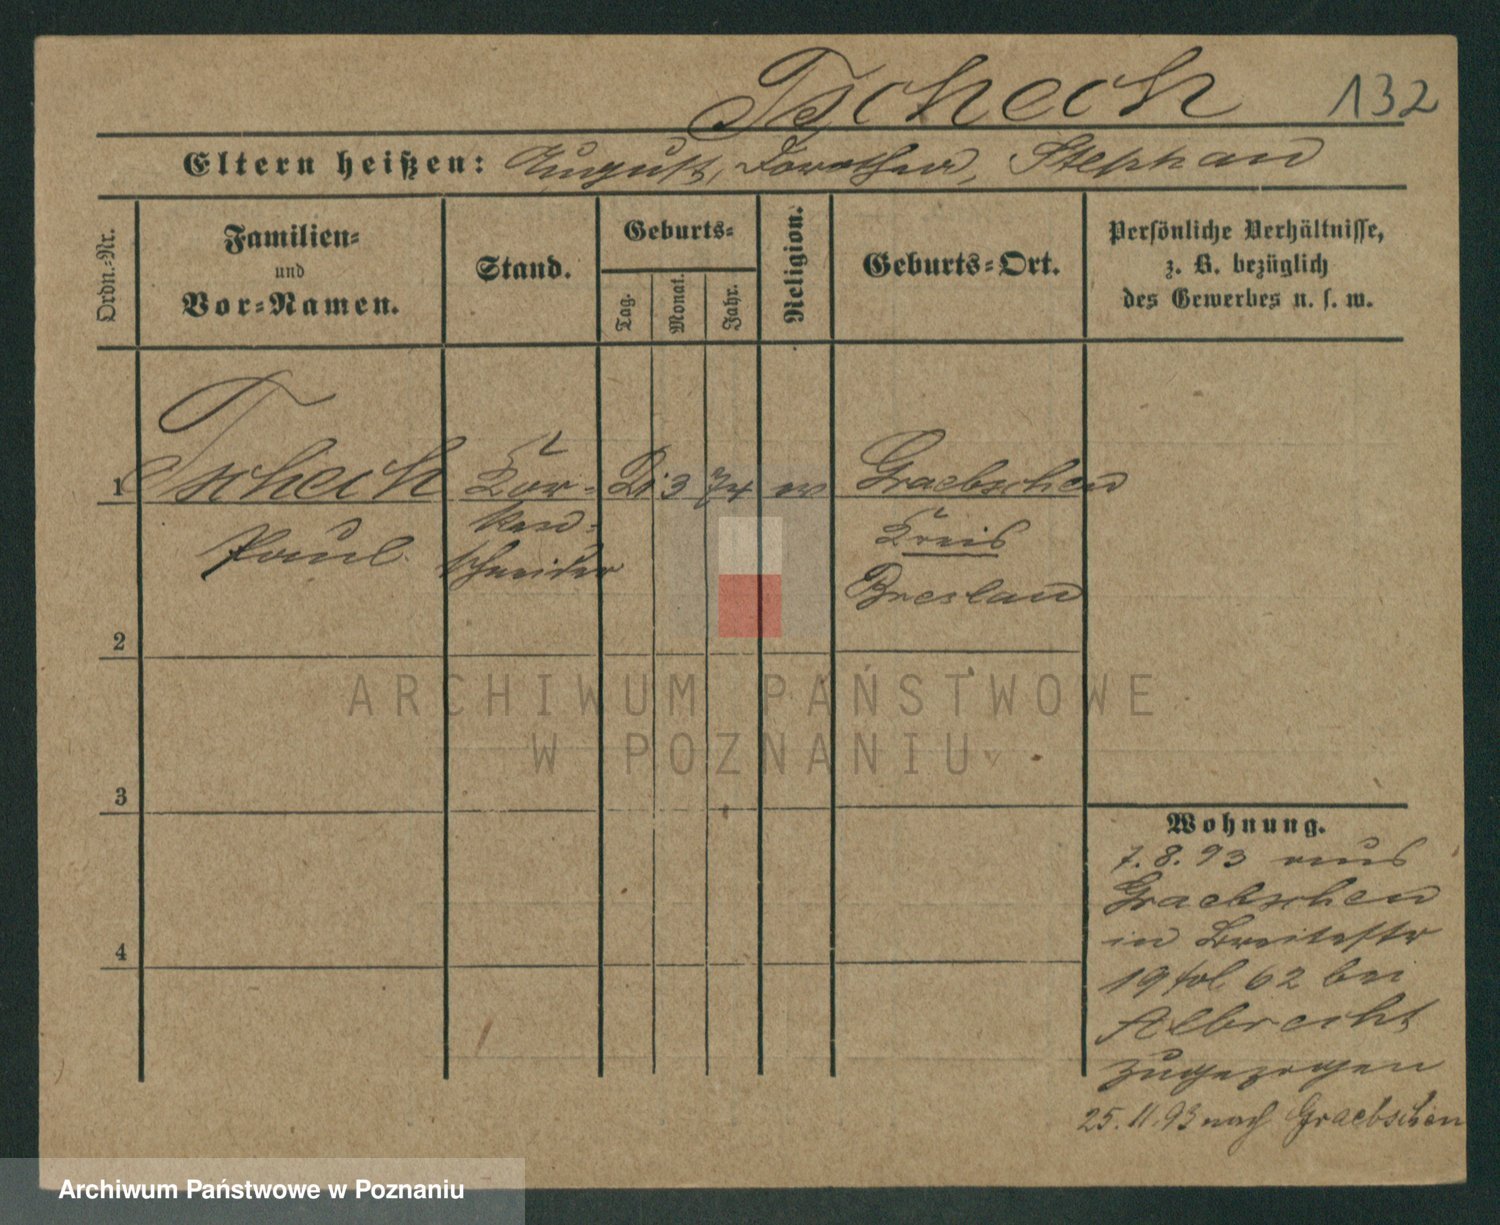 Tschech 132
Eltern heißen: August, Dorothea, Stephan
Ordn.=Nr.
Familien=
und
Vor=Namen.
Stand.
Geburts=
Tag.
Monat.
Jahr.
Religion.
Geburts=Ort.
Persönliche Verhältnisse,
z. B. bezüglich
des Gewerbes u. s. w.
1 Tschech Kor- 3 74 ev Graebschen
Paul
ken-
schneider
Kreis
Breslau
2
3
4
ARCHIWUM PAŃSTWOWE
W POZNANIU
Wohnung.
7.8.93 aus
Graebschen
in Breitestr
19 62 bei
Albrecht
zugezogen
25.11.93 nach Graebschen
Archiwum Państwowe w Poznaniu